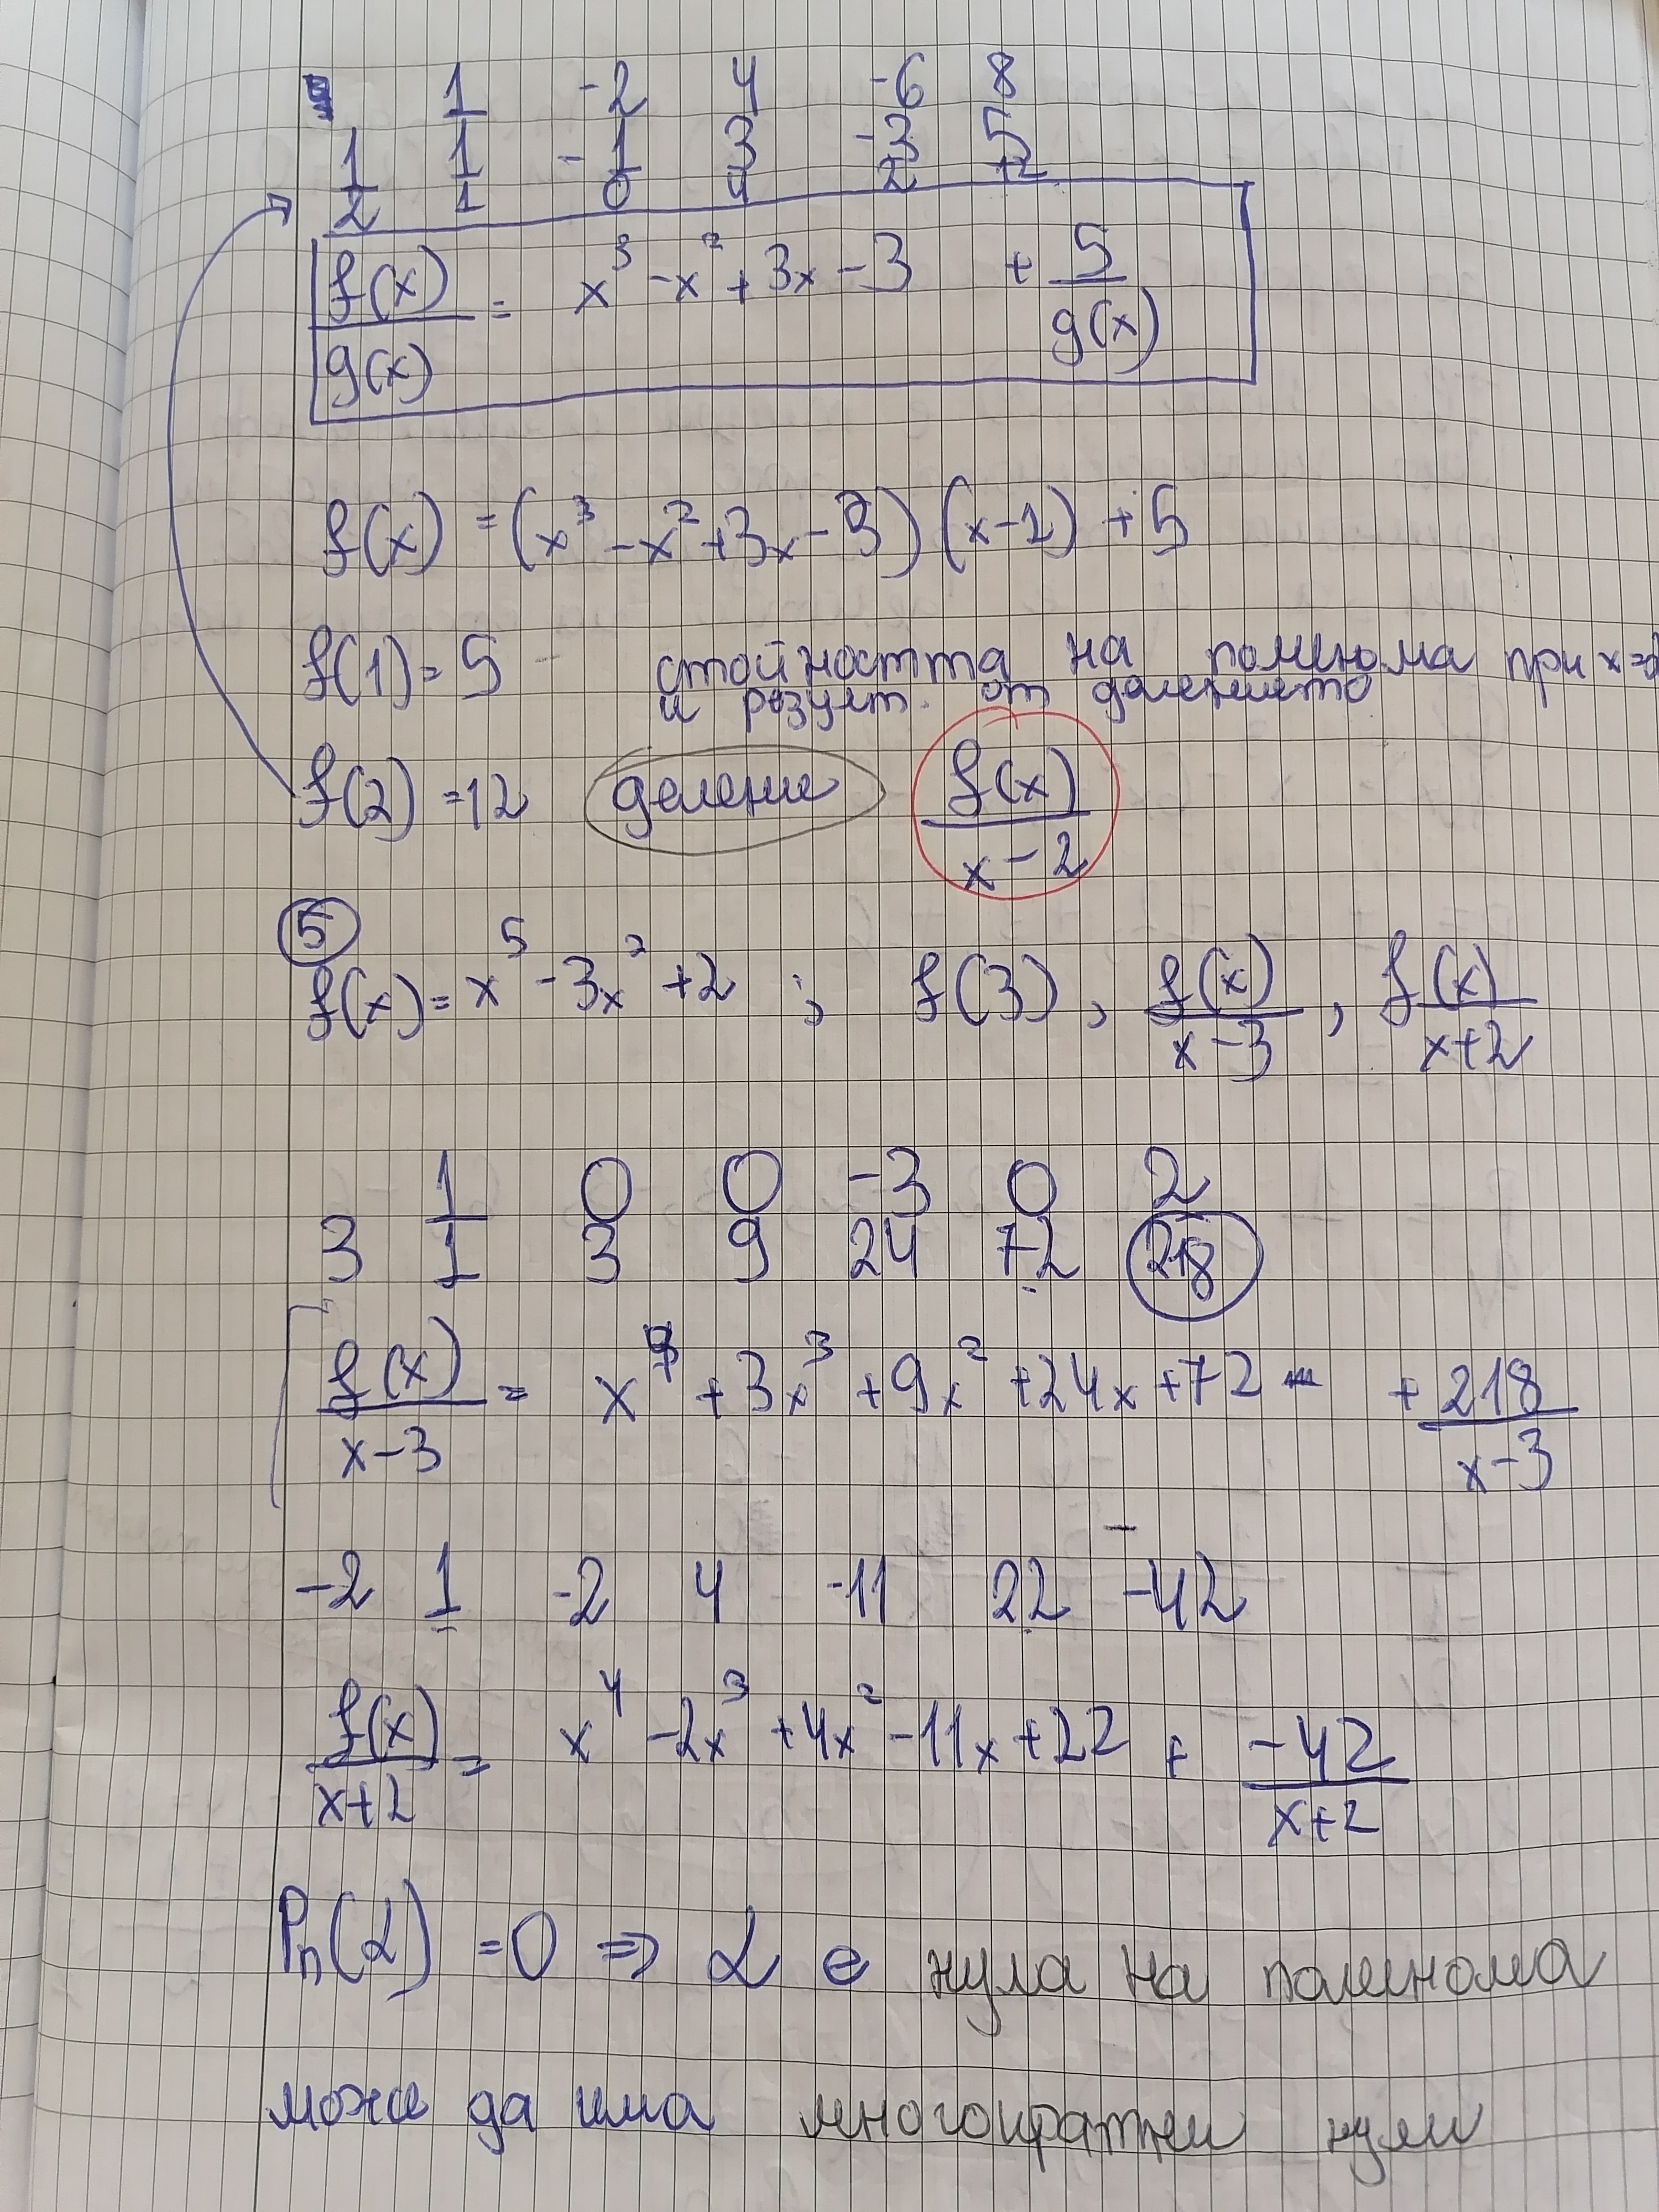 1 -2 4 -6 8
1 1 -1 3 -3 5
2 1 0 4 2 12
f(x)/g(x) = x³ - x² + 3x - 3 + 5/g(x)
f(x) = (x³ - x² + 3x - 3)(x - 1) + 5
f(1) = 5 - стойността на полинома при x=
и резулт. от делението
f(2) = 12 деление f(x)/x-2
5
f(x) = x⁵ - 3x² + 2 ; f(3), f(x)/x-3, f(x)/x+2
1 0 0 -3 0 2
3 1 3 9 24 72 218
f(x)/x-3 = x⁴ + 3x³ + 9x² + 24x + 72 + 218/x-3
-2 1 -2 4 -11 22 -42
f(x)/x+2 = x⁴ - 2x³ + 4x² - 11x + 22 + -42/x+2
Pn(α) = 0 ⇒ α е нула на полинома
може да има многократни нули